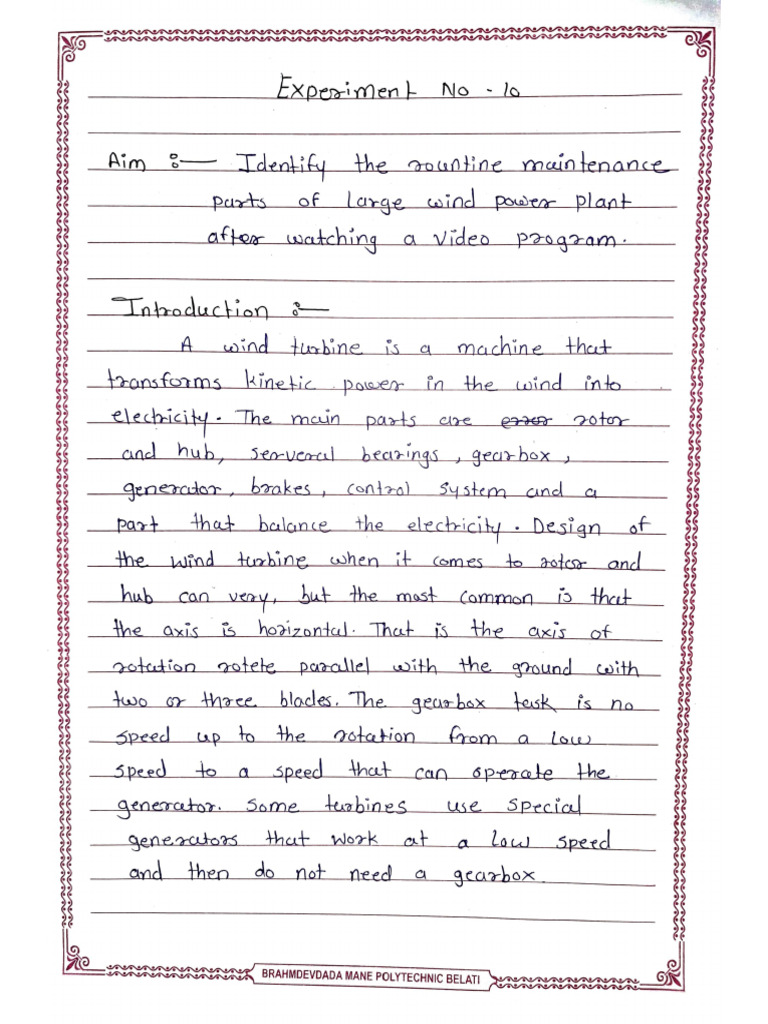 Experiment No - 10
Aim :- Identify the rountine maintenance
parts of large wind power plant
after watching a video program.
Introduction :-
A wind turbine is a machine that
transforms kinetic power in the wind into
electricity. The main parts are rotor
and hub, serveral bearings, gearbox,
generator, brakes, control system and a
part that balance the electricity. Design of
the wind turbine when it comes to rotor and
hub can very, but the most common is that
the axis is horizontal. That is the axis of
rotation rotete parallel with the ground with
two or three blades. The gearbox task is no
speed up to the rotation from a low
speed to a speed that can operate the
generator. Some turbines use special
generators that work at a low speed
and then do not need a gearbox.
BRAHMDEVDADA MANE POLYTECHNIC BELATI